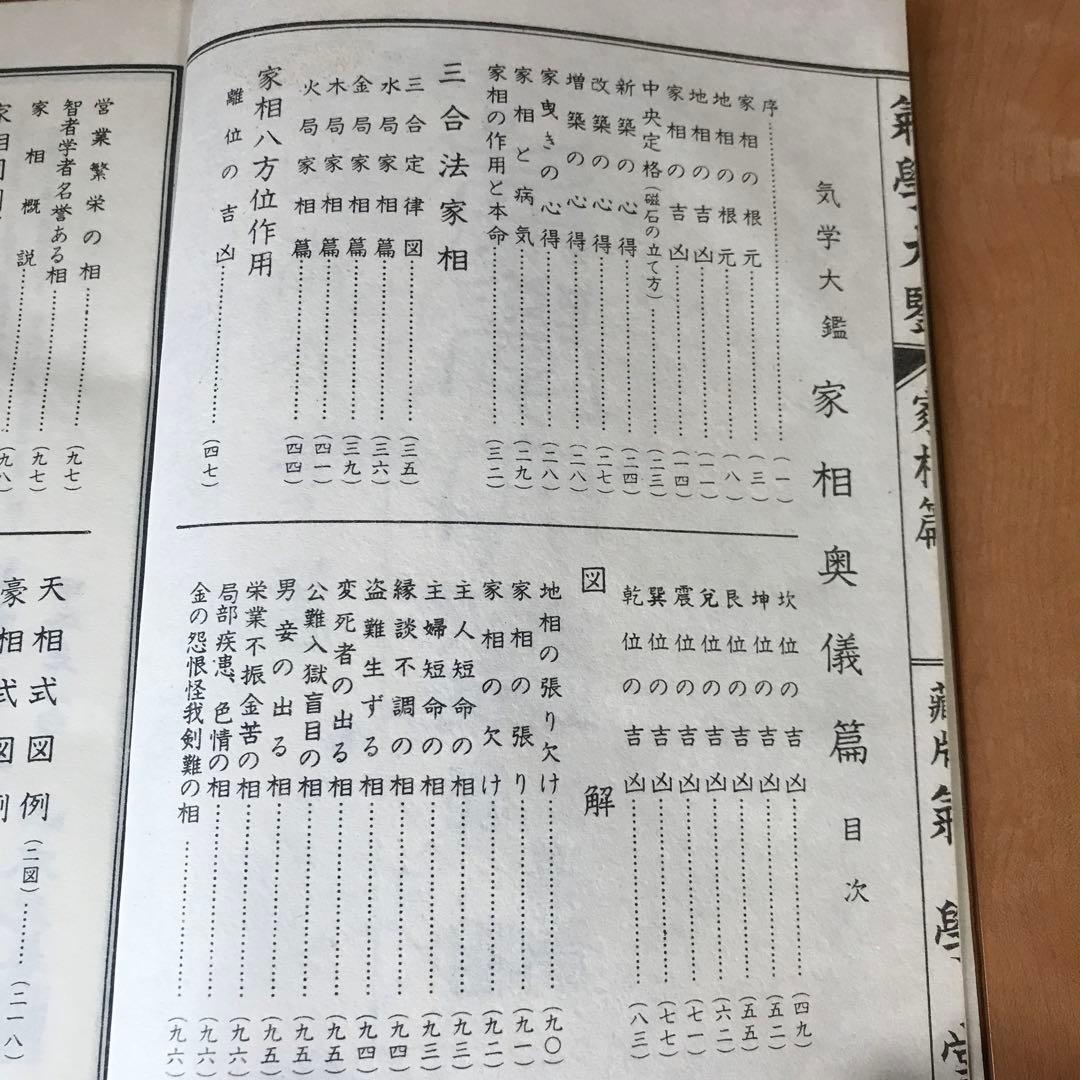 氣學大鑒 家相篇 藏版氣學堂
気学大鑑 家相奥儀篇 目次
序……(一)
家相の根元……(三)
地相の根元……(八)
地相の吉凶……(一一)
家相の吉凶……(一四)
中央定格(磁石の立て方)……(二三)
新築の心得……(二四)
改築の心得……(二七)
増築の心得……(二八)
家曳きの心得……(二八)
家相と病気……(二九)
家相の作用と本命……(三二)
三合法家相
三合定律図……(三五)
水局家相篇……(三六)
金局家相篇……(三九)
木局家相篇……(四一)
火局家相篇……(四四)
家相八方位作用
離位の吉凶……(四七)
坎位の吉凶……(四九)
坤位の吉凶……(五二)
艮位の吉凶……(五五)
兌位の吉凶……(六二)
震位の吉凶……(七一)
巽位の吉凶……(七七)
乾位の吉凶……(八三)
図解
地相の張り欠け……(九〇)
家相の張り……(九一)
家相の欠け……(九二)
主人短命の相……(九三)
主婦短命の相……(九三)
縁談不調の相……(九四)
盗難生ずる相……(九四)
変死者の出る相……(九五)
公難入獄盲目の相……(九五)
男妾の出る相……(九五)
栄業不振金苦の相……(九六)
局部疾患、色情の相……(九六)
金の怨恨怪我剣難の相……(九六)
営業繁栄の相……(九七)
智者学者名誉ある相……(九七)
家相概説……(九八)
天相式図例(二図)……(二一八)
豪相式図例